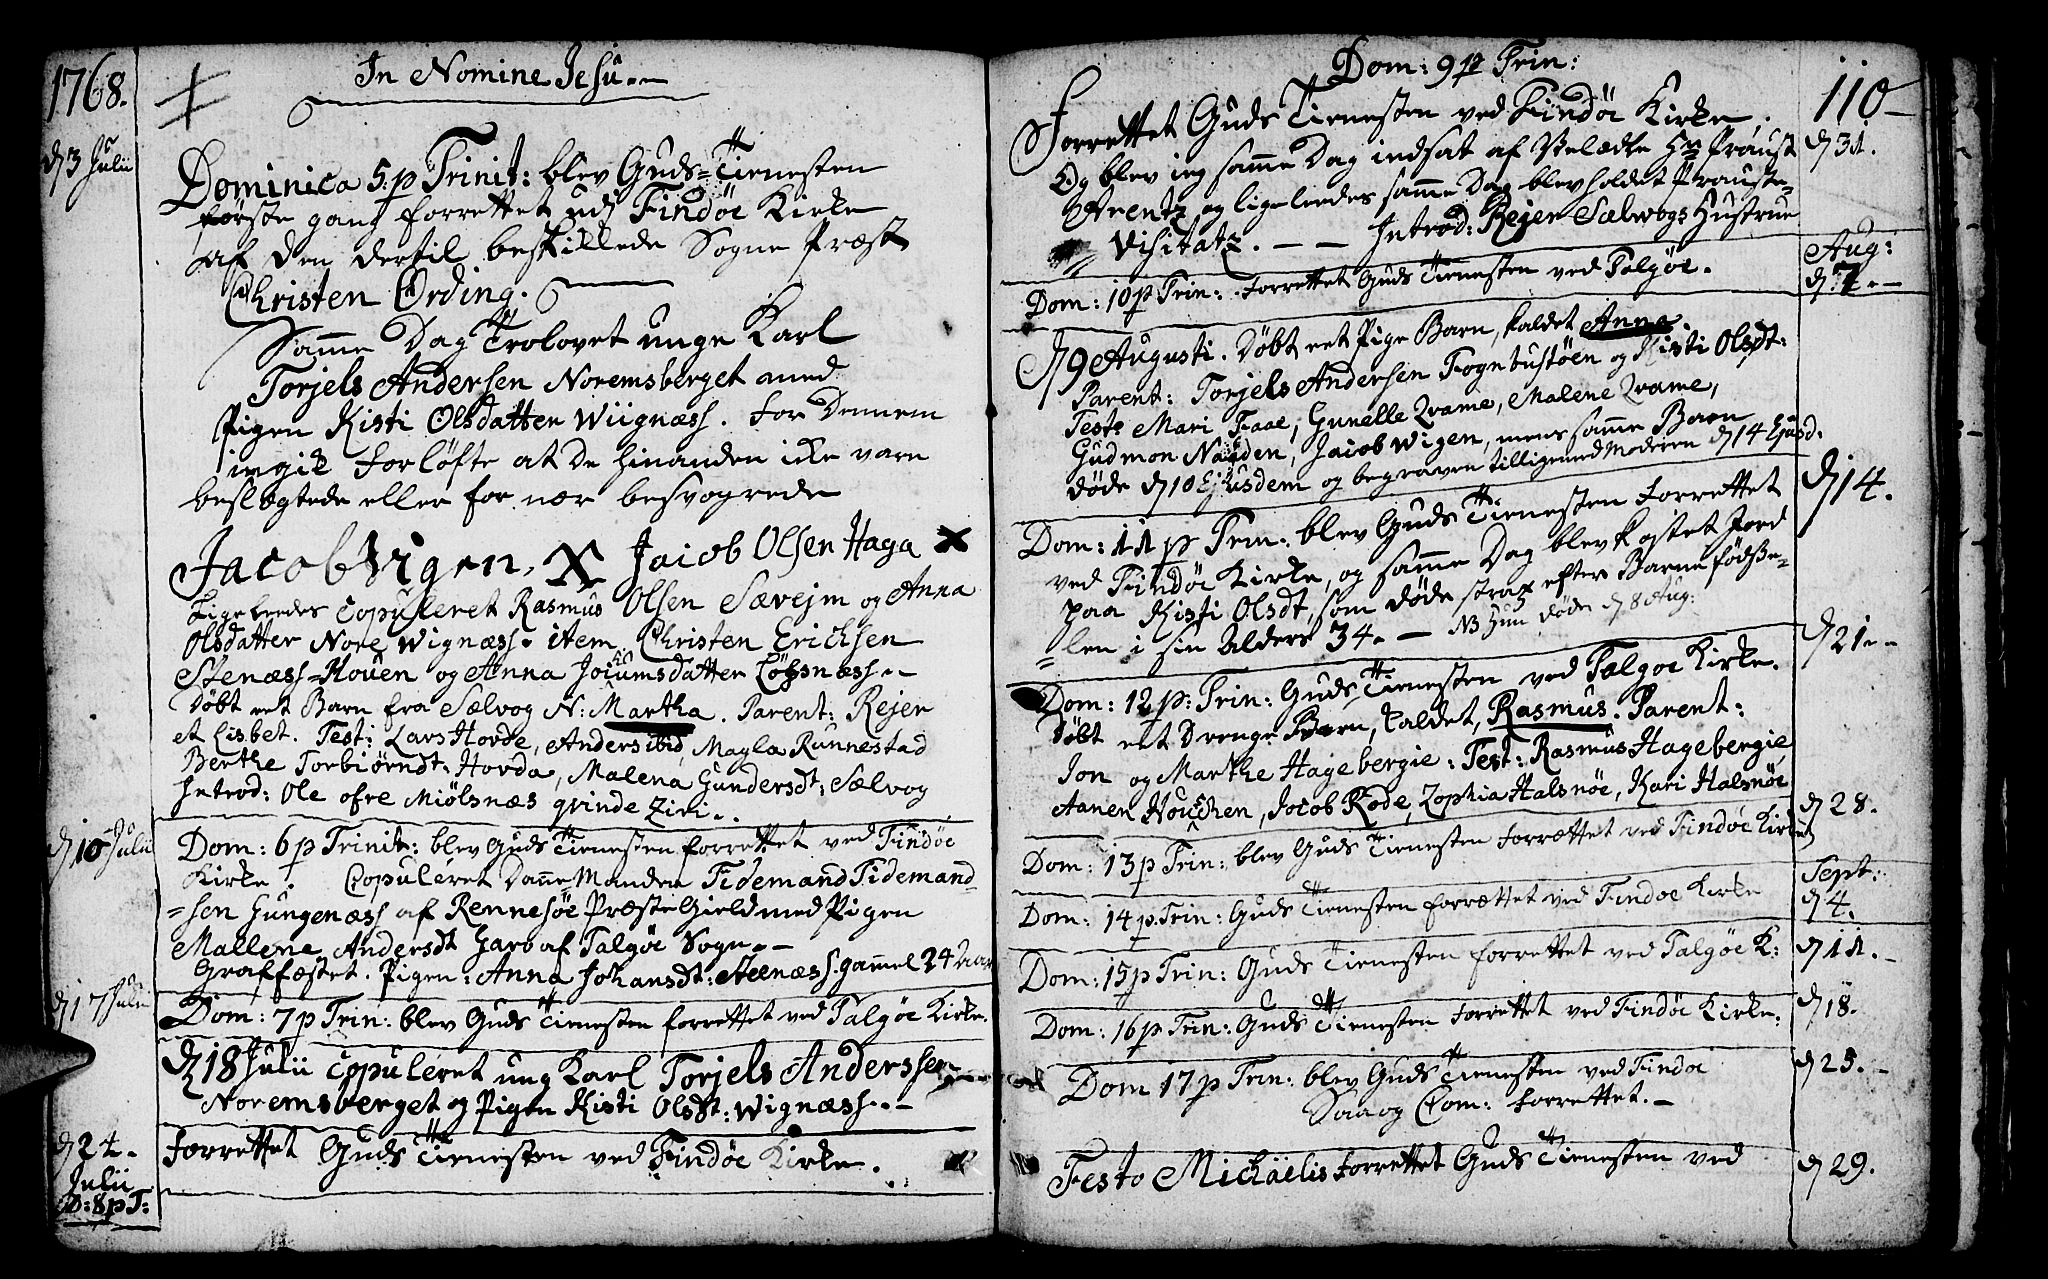 1768.
In Nomine Jesu.
d 3 Julii
Dominica 5. p Trinit: blev Guds-Tienesten
første gang forrettet ved Findöe Kirke
af den dertil beskikkede Sogne Præst
Christen Ørding.
Samme Dag Trolovet unge Karl
Torjels Andersen Noremsberget med
Pigen Kisti Olsdatter Wiignæss. For Dennem
ingik forløfte at De hinanden icke vare
beslegtede eller for nær besvogrede
Jacob Vigen. X Jacob Olsen Haga X
Ligeledes Copuleret Rasmus Olsen Sævejm og Anna
Olsdatter Nore Wignæss. item Christen Erichsen
Stenæss-Houen og Anna Jochumsdatter Löhsnæss.
Döbt eet Barn fra Sælvog N: Martha. Parent: Rejer
et Lisbet. Test: Lars Hovde, Anders ibid, Magla Runnestad
Berthe Torbiörndt: Hovda, Malena Gundersdt: Sælvog
Introd: Ole ofre Miölsnæs qvinde Ziri.
d 10 Julii
Dom: 6 p Trinit: blev Guds Tienesten forrettet ved Findöe
Kirke. Copuleret Danne Manden Tidemand Tidemand
=sen Gungenæss af Rennesöe Præste Gield med Pigen
Mallene Andersdt Garo af Talgöe Sogn.
Graffæstet. Pigen: Anna Johansdt: Steenæss. gammel 24 Aar
d 17 Julii
Dom: 7 p Trin: blev Guds Tienesten forrettet ved Talgöe Kirke.
d 18 Julii Copuleret ung Karl Torjels Anderssen
Noremsberget og Pigen Kisti Olsdt: Wignæss.
d 24.
Julii
D: 8 p T:
Forrettet Guds Tienesten ved Findöe Kirke.
Dom: 9 p Trin:
110
Forrettet Guds Tienesten ved Findöe Kirke.
d 31.
Og blev ieg samme Dag indsat af Velædle Hr Proust
Arentz og ligeleedes samme Dag blev holdet Prouste-
Visitatz. Introd: Rejer Sælwogs Hustrue
Aug:
d 7.
Dom: 10 p Trin: forrettet Guds Tienesten ved Talgöe.
d 9 Augusti. Döbt eet Pige Barn, kaldet Anna.
Parent: Torjels Andersen Fogn bustöen og Kisti Olsdt:
Test: Mari Faae, Gunelle Qvame, Malene Qvame,
Gudmon Nåden, Jacob Wigen, mens samme Barn
döde d 10 Ejusdem og begraven tilligemed Moderen d 14 Ejusd.
d 14.
Dom: 11 p Trin: blev Guds Tienesten forrettet
ved Findöe Kirke, og samme Dag blev kastet Jord
paa Kisti Olsdt, som döde strax efter Barne fødse-
=len i sin Alders 34. NB Hun döde d 8 Aug:
d 21.
Dom: 12 p: Trin: Guds Tienesten ved Talgoe Kirke.
Döbt eet Drenge Barn, kaldet, Rasmus. Parent:
Jon og Marthe Hagebergie: Test: Rasmus Hagebergie
Aanen Houschen, Jocob Rode, Zophia Halsnöe, Kari Halsnöe
d 28.
Dom: 13 p Trin: blev Guds Tienesten forrættet ved Findöe Kirke
Sept:
d 4.
Dom: 14 p. Trin: Guds Tienesten forrættet ved Findoe Kirke
d 11.
Dom: 15 p Trin: Guds Tienesten forrettet ved Talgöe K:
d 18.
Dom: 16 p Trin: Guds Tienesten forrettet ved Findöe Kirke.
d 25.
Dom 17 p Trin: blev Guds Tienesten ved Findöe
Saa og Com: forrettet.
d 29.
Festo Michäelis forrettet Guds Tienesten ved